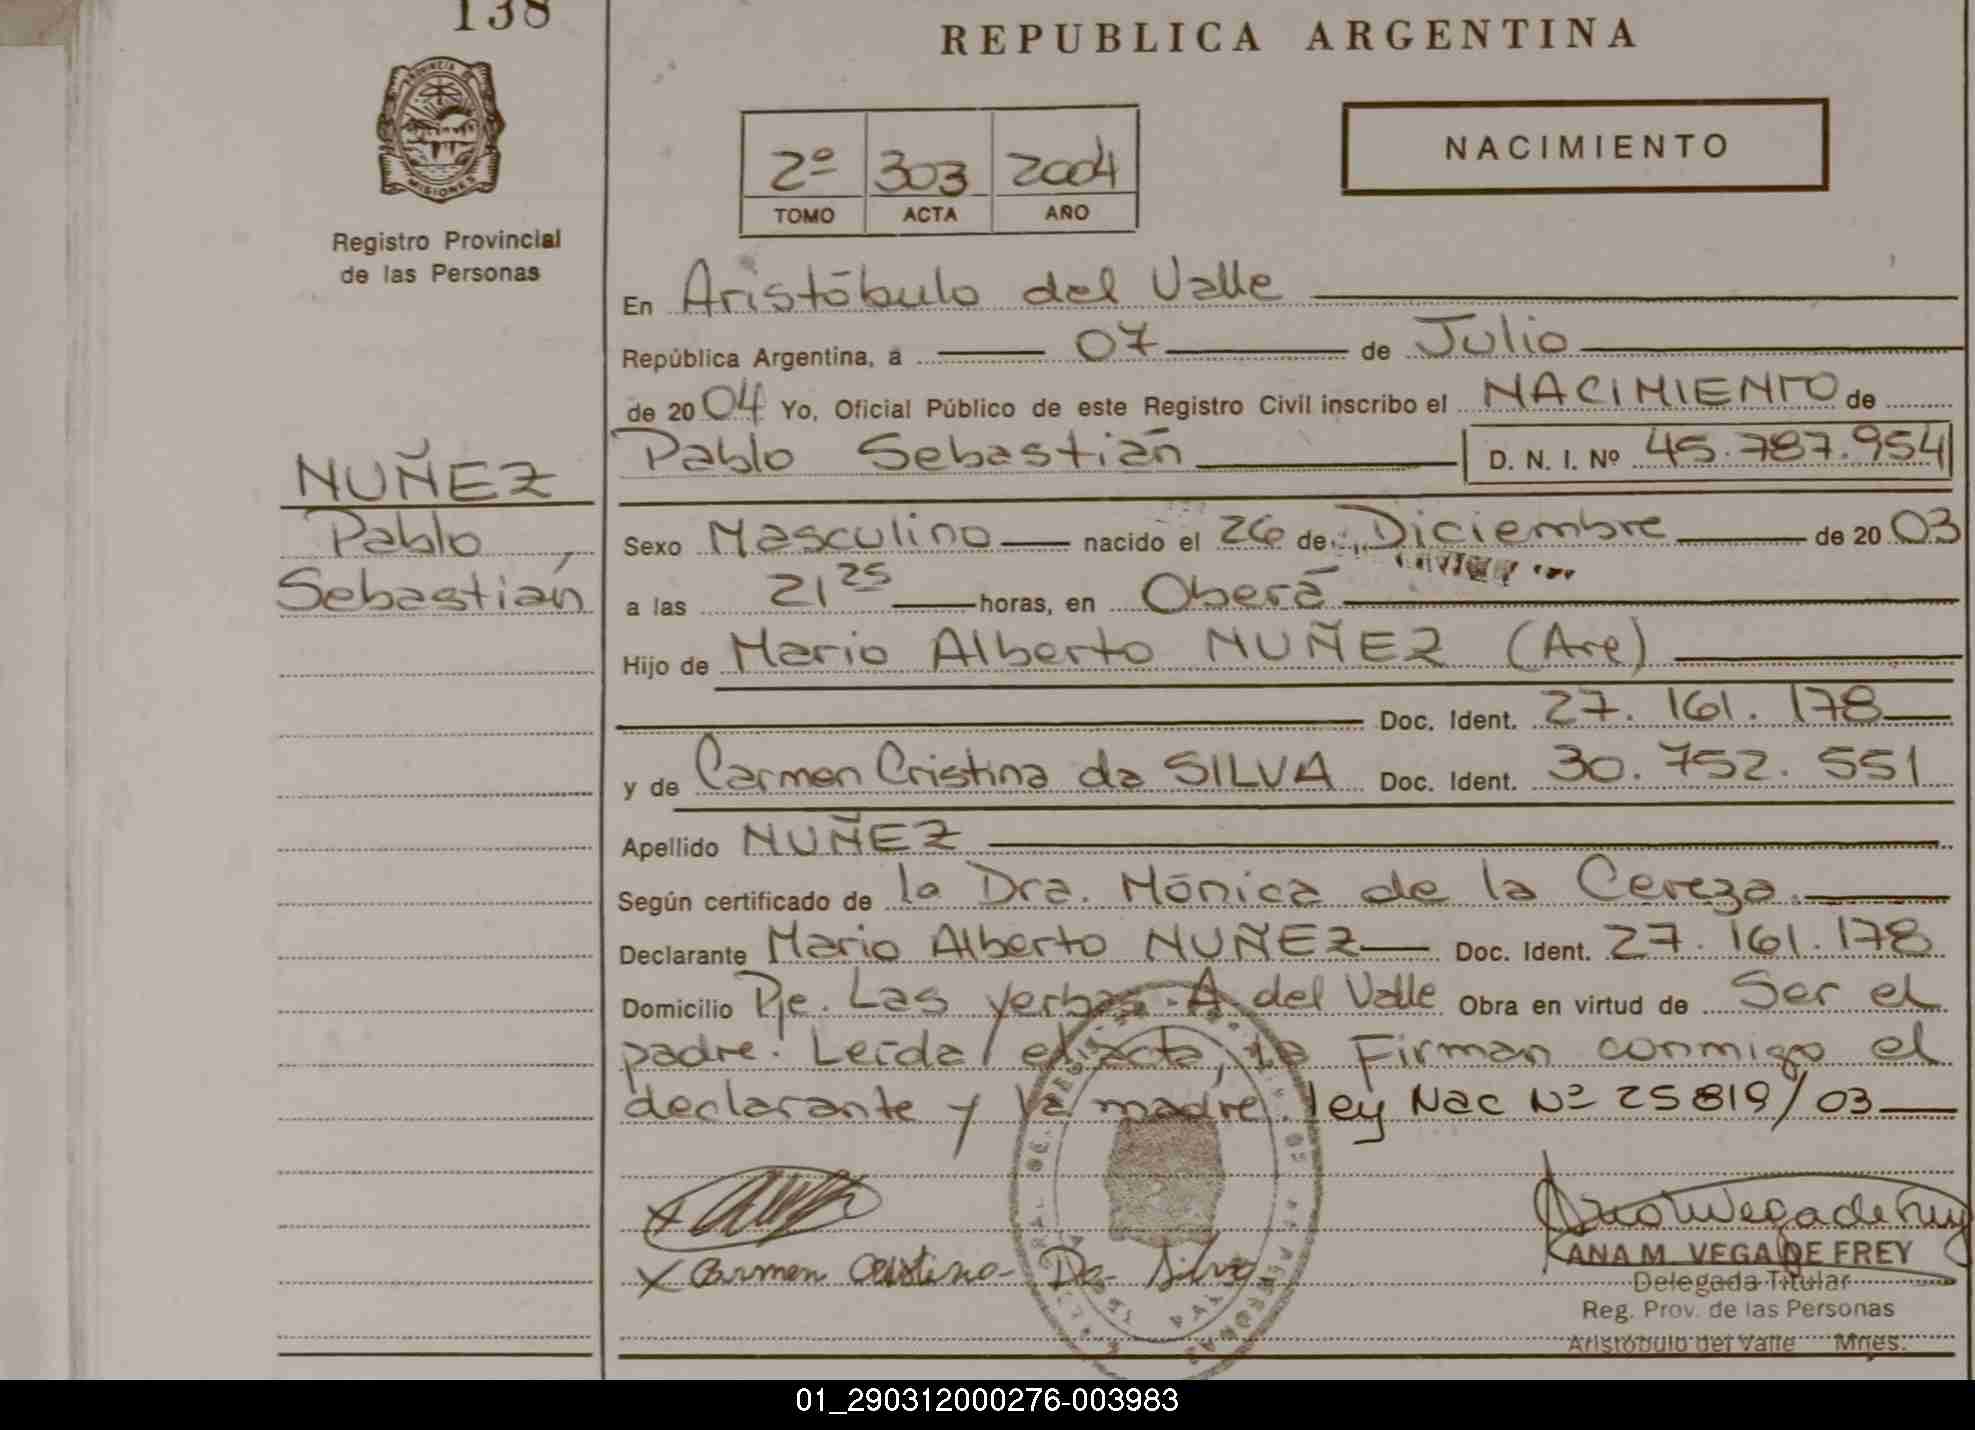 138
REPUBLICA ARGENTINA
PROVINCIA DE
MISIONES
Registro Provincial
de las Personas
2º 303 2004
TOMO ACTA AÑO
NACIMIENTO
En Aristóbulo del Valle
República Argentina, a 07 de Julio
de 2004 Yo, Oficial Público de este Registro Civil inscribo el NACIMIENTO de
Pablo Sebastián D. N. I. Nº 45.787.954
NUÑEZ
Pablo
Sebastián
Sexo Masculino nacido el 26 de Diciembre de 2003
a las 21 25 horas, en Oberá
Hijo de Mario Alberto NUÑEZ (Are)
Doc. Ident. 27.161.178
y de Carmen Cristina da SILVA Doc. Ident. 30.752.551
Apellido NUÑEZ
Según certificado de la Dra. Mónica de la Cereza.
Declarante Mario Alberto NUÑEZ Doc. Ident. 27.161.178
Domicilio Pje. Las Yerbas. A del Valle Obra en virtud de Ser el
padre. Leída el acta, la Firman conmigo el
declarante y la madre. ley Nac Nº 25819/03
X Carmen Cristina Da Silva
ANA M. VEGA DE FREY
Delegada Titular
Reg. Prov. de las Personas
Aristóbulo del Valle Mnes.
01_290312000276-003983